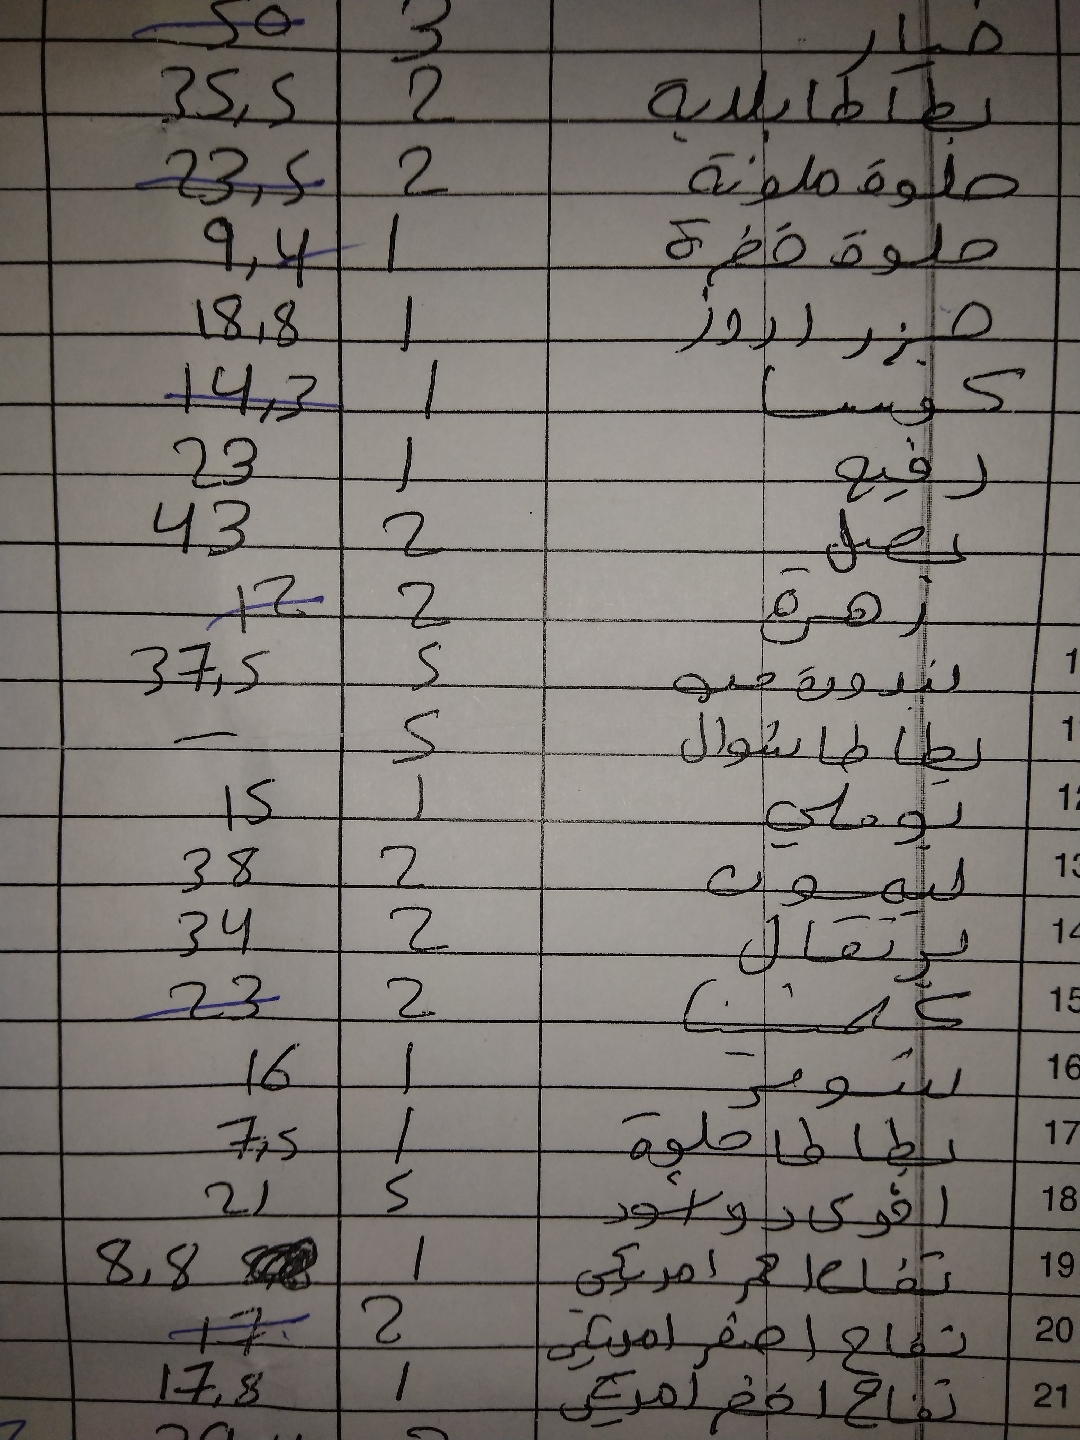 خيار 3 50
بطاطا بلدية 2 35,5
حلوة ملونة 2 23,5
حلوة خضرة 1 9,4
جزر اروز 1 18,8
كوسا 1 14,3
رفيع 1 23
بصل 2 43
زهرة 2 12
بندورة حبه 5 37,5
1 بطاطا شوال 5 —
12 توماي 1 15
13 ليمون 2 38
14 برتقال 2 34
15 كلمنتينا 2 23
16 1 16
17 بطاطا حلوة 1 7,5
18 5 21
19 تفاح احمر امريكي 1 8,8
20 تفاح اصفر امريكي 2 17
21 تفاح اخضر امريكي 1 17,8